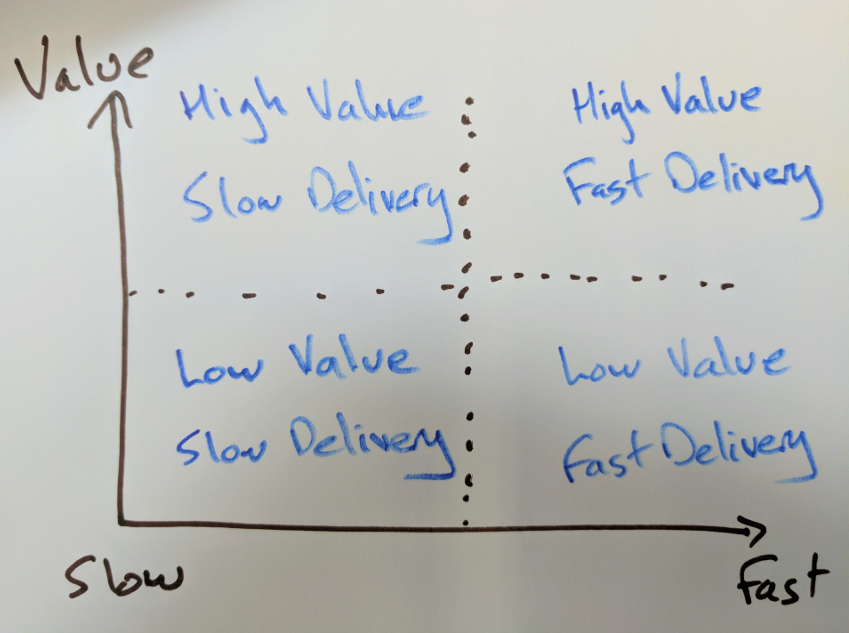 Value
High Value
Slow Delivery
High Value
Fast Delivery
Low Value
Slow Delivery
Low Value
Fast Delivery
Slow
Fast